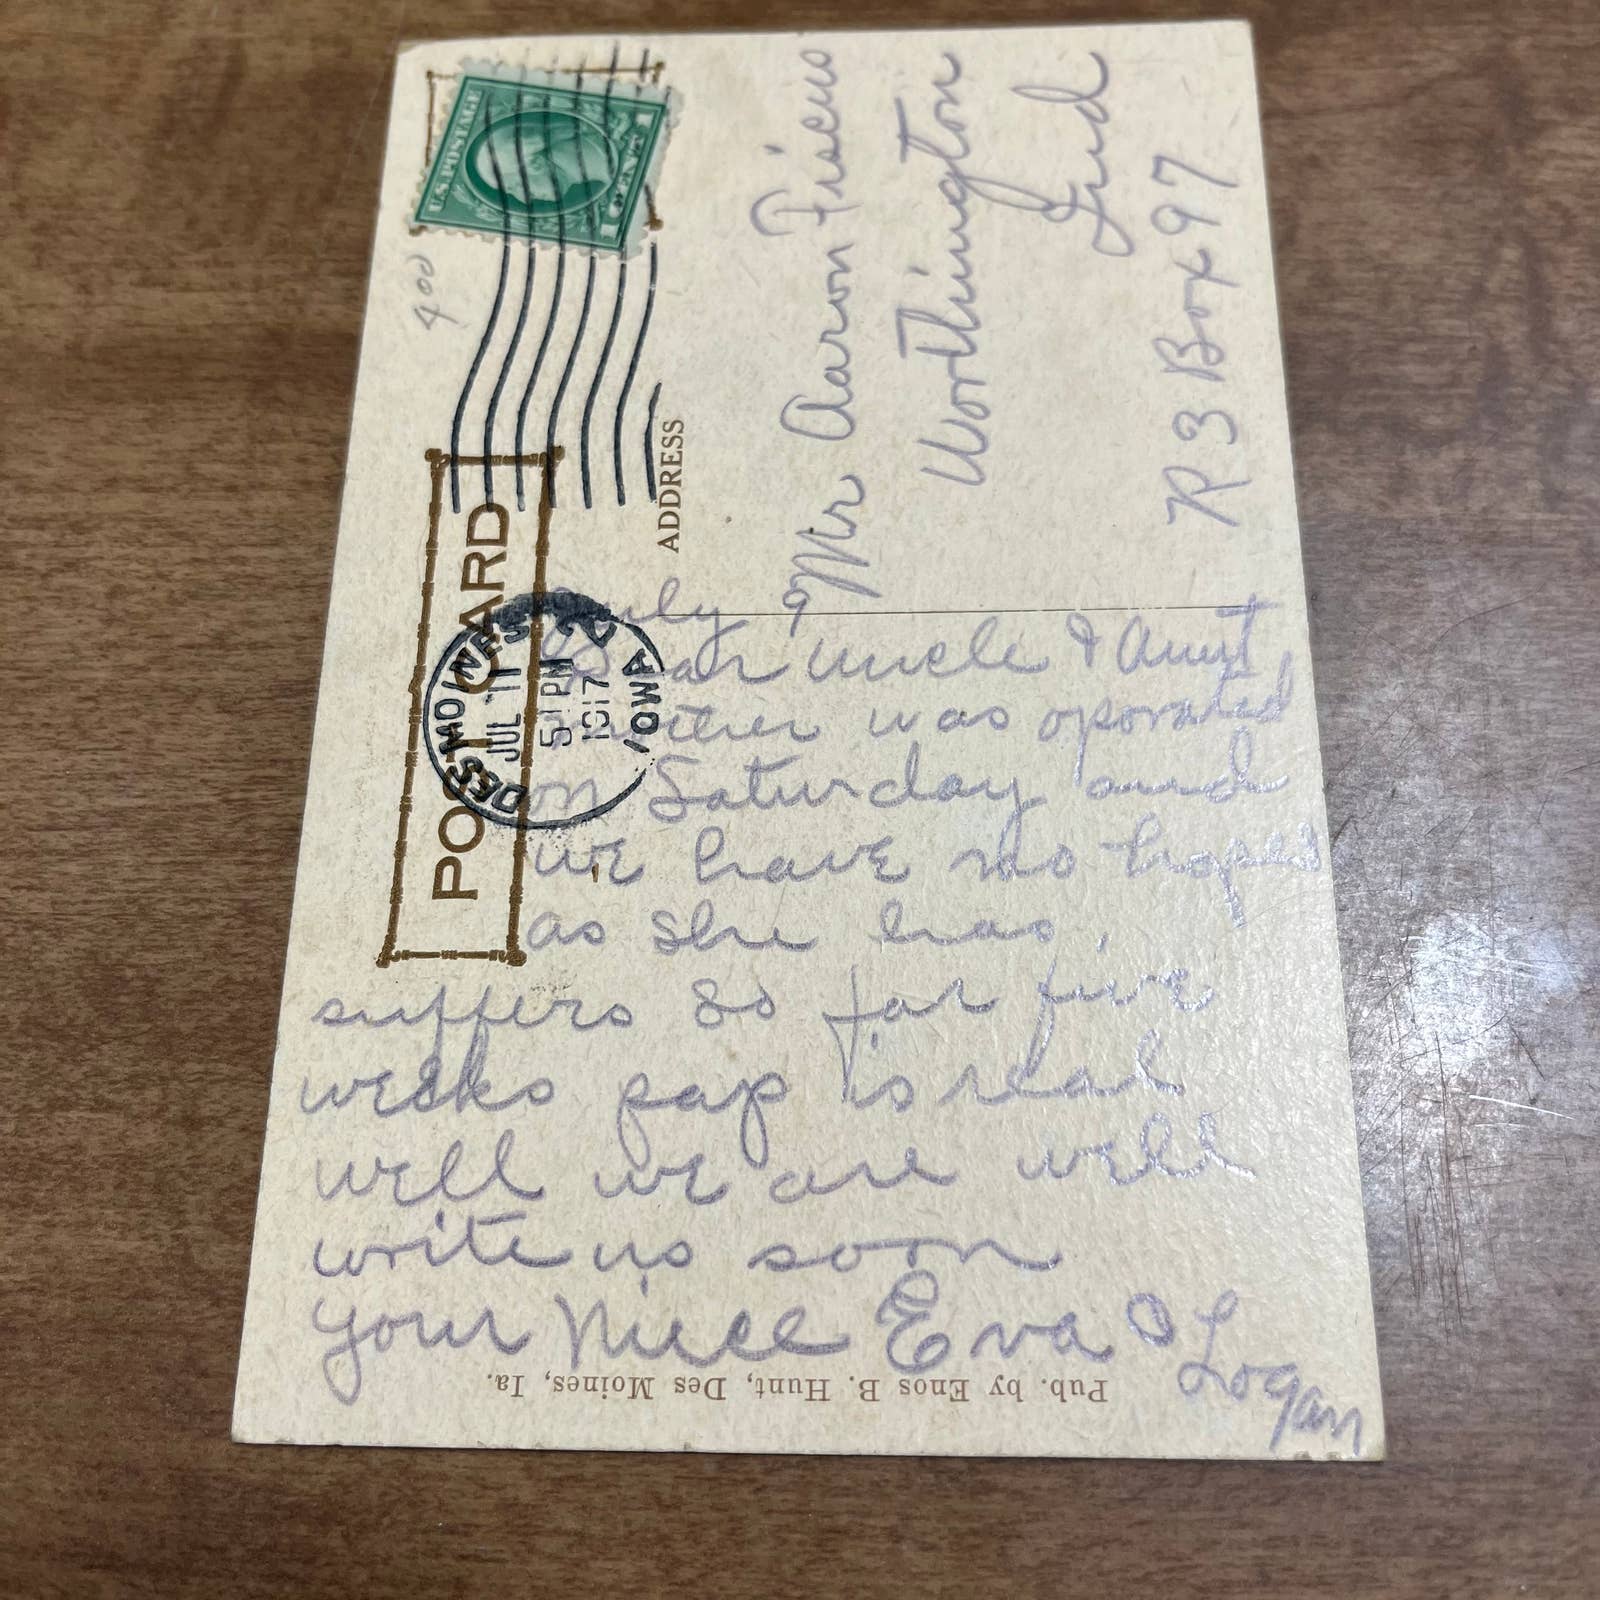 POST CARD
ADDRESS
U.S. POSTAGE
1 CENT 1
DES MOINES
JUL 11
5 - PM
1917
IOWA
400
Mr Aaron Fiscus
Worthington
Ind
R 3 Box 97
July 9
Dear uncle & Aunt
mother was oporated
on Saturday and
we have no hopes
as she has,
suffers so far five
weeks pap is real
well we are well
write us soon
your Niece Eva O Logan
Pub. by Enos B. Hunt, Des Moines, Ia.